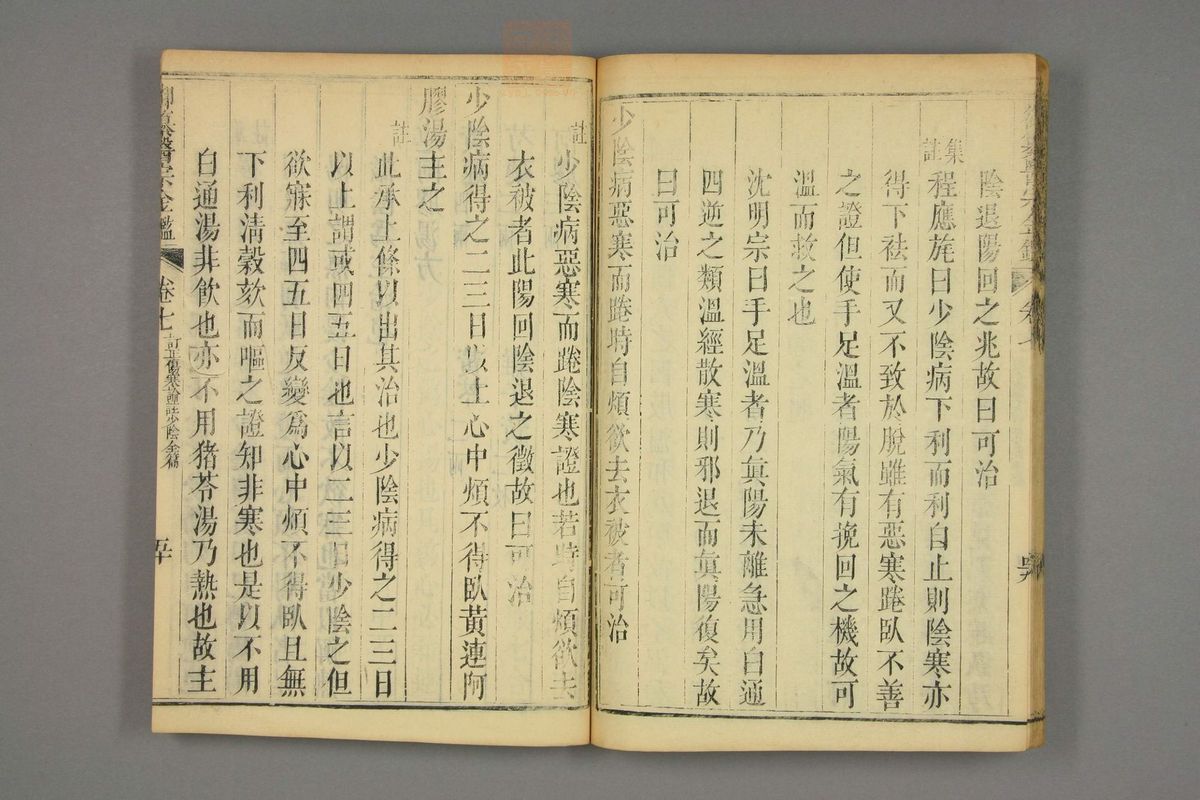 陰退陽回之兆故曰可治
集註
程應旄曰少陰病下利而利自止則陰寒亦
得下祛而又不致於脫雖有惡寒踡臥不善
之證但使手足溫者陽氣有挽回之機故可
溫而救之也
沈明宗曰手足溫者乃眞陽未離急用白通
四逆之類溫經散寒則邪退而眞陽復矣故
曰可治
少陰病惡寒而踡時自煩欲去衣被者可治
註
少陰病惡寒而踡陰寒證也若時自煩欲去
衣被者此陽回陰退之徵故曰可治
少陰病得之二三日以上心中煩不得臥黃連阿
膠湯主之
註
此承上條以出其治也少陰病得之二三日
以上謂或四五日也言以二三日少陰之但
欲寐至四五日反變爲心中煩不得臥且無
下利清穀欬而嘔之證知非寒也是以不用
白通湯非飮也亦不用猪苓湯乃熱也故主
御纂醫宗金鑑
卷七
訂正傷寒論註少陰全篇
五十